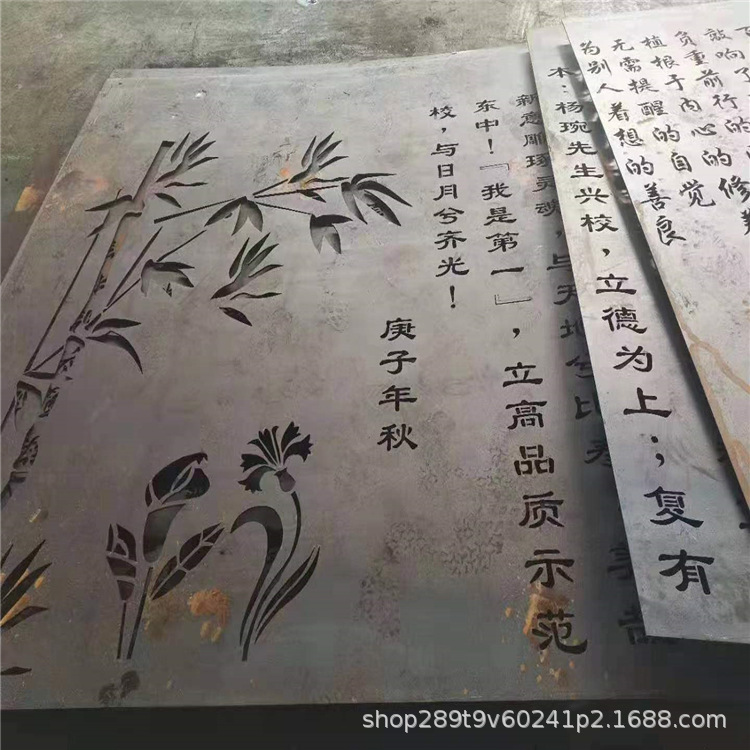 敲响了
负重前行的
植根于内心的修养
无需提醒的自觉
为别人着想的善良
本：杨琬先生兴校，立德为上；复有
新意雕琢灵魂，与天地兮比寿
东中！「我是第一」，立高品质示范
校，与日月兮齐光！
庚子年秋
shop289t9v60241p2.1688.com